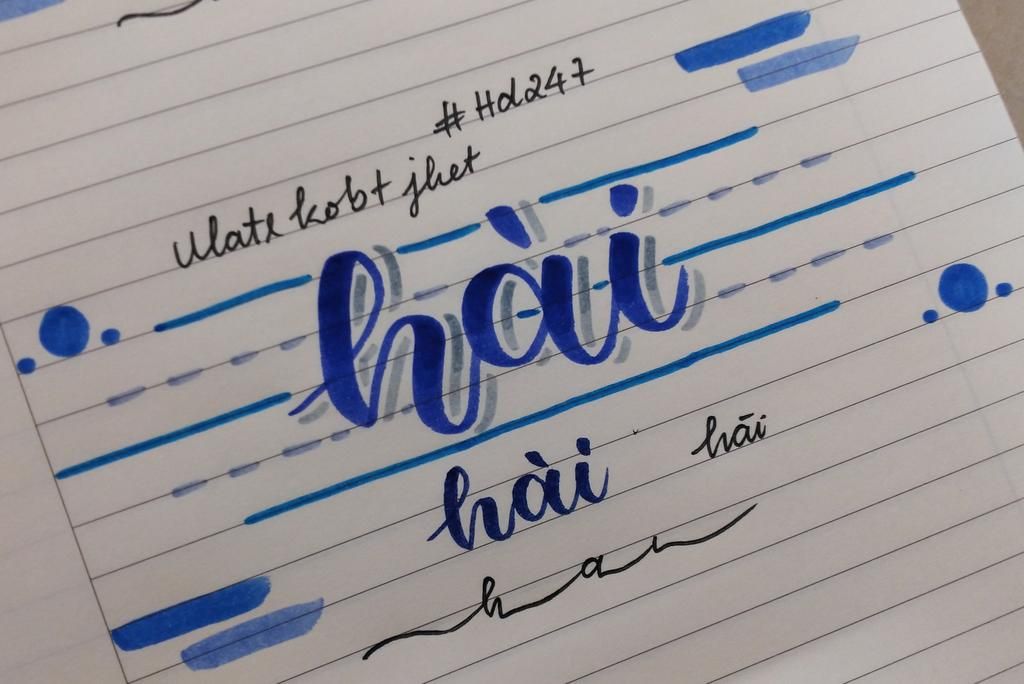 #Hd247
Ulate kobt jhet
hài
hài hāi
han